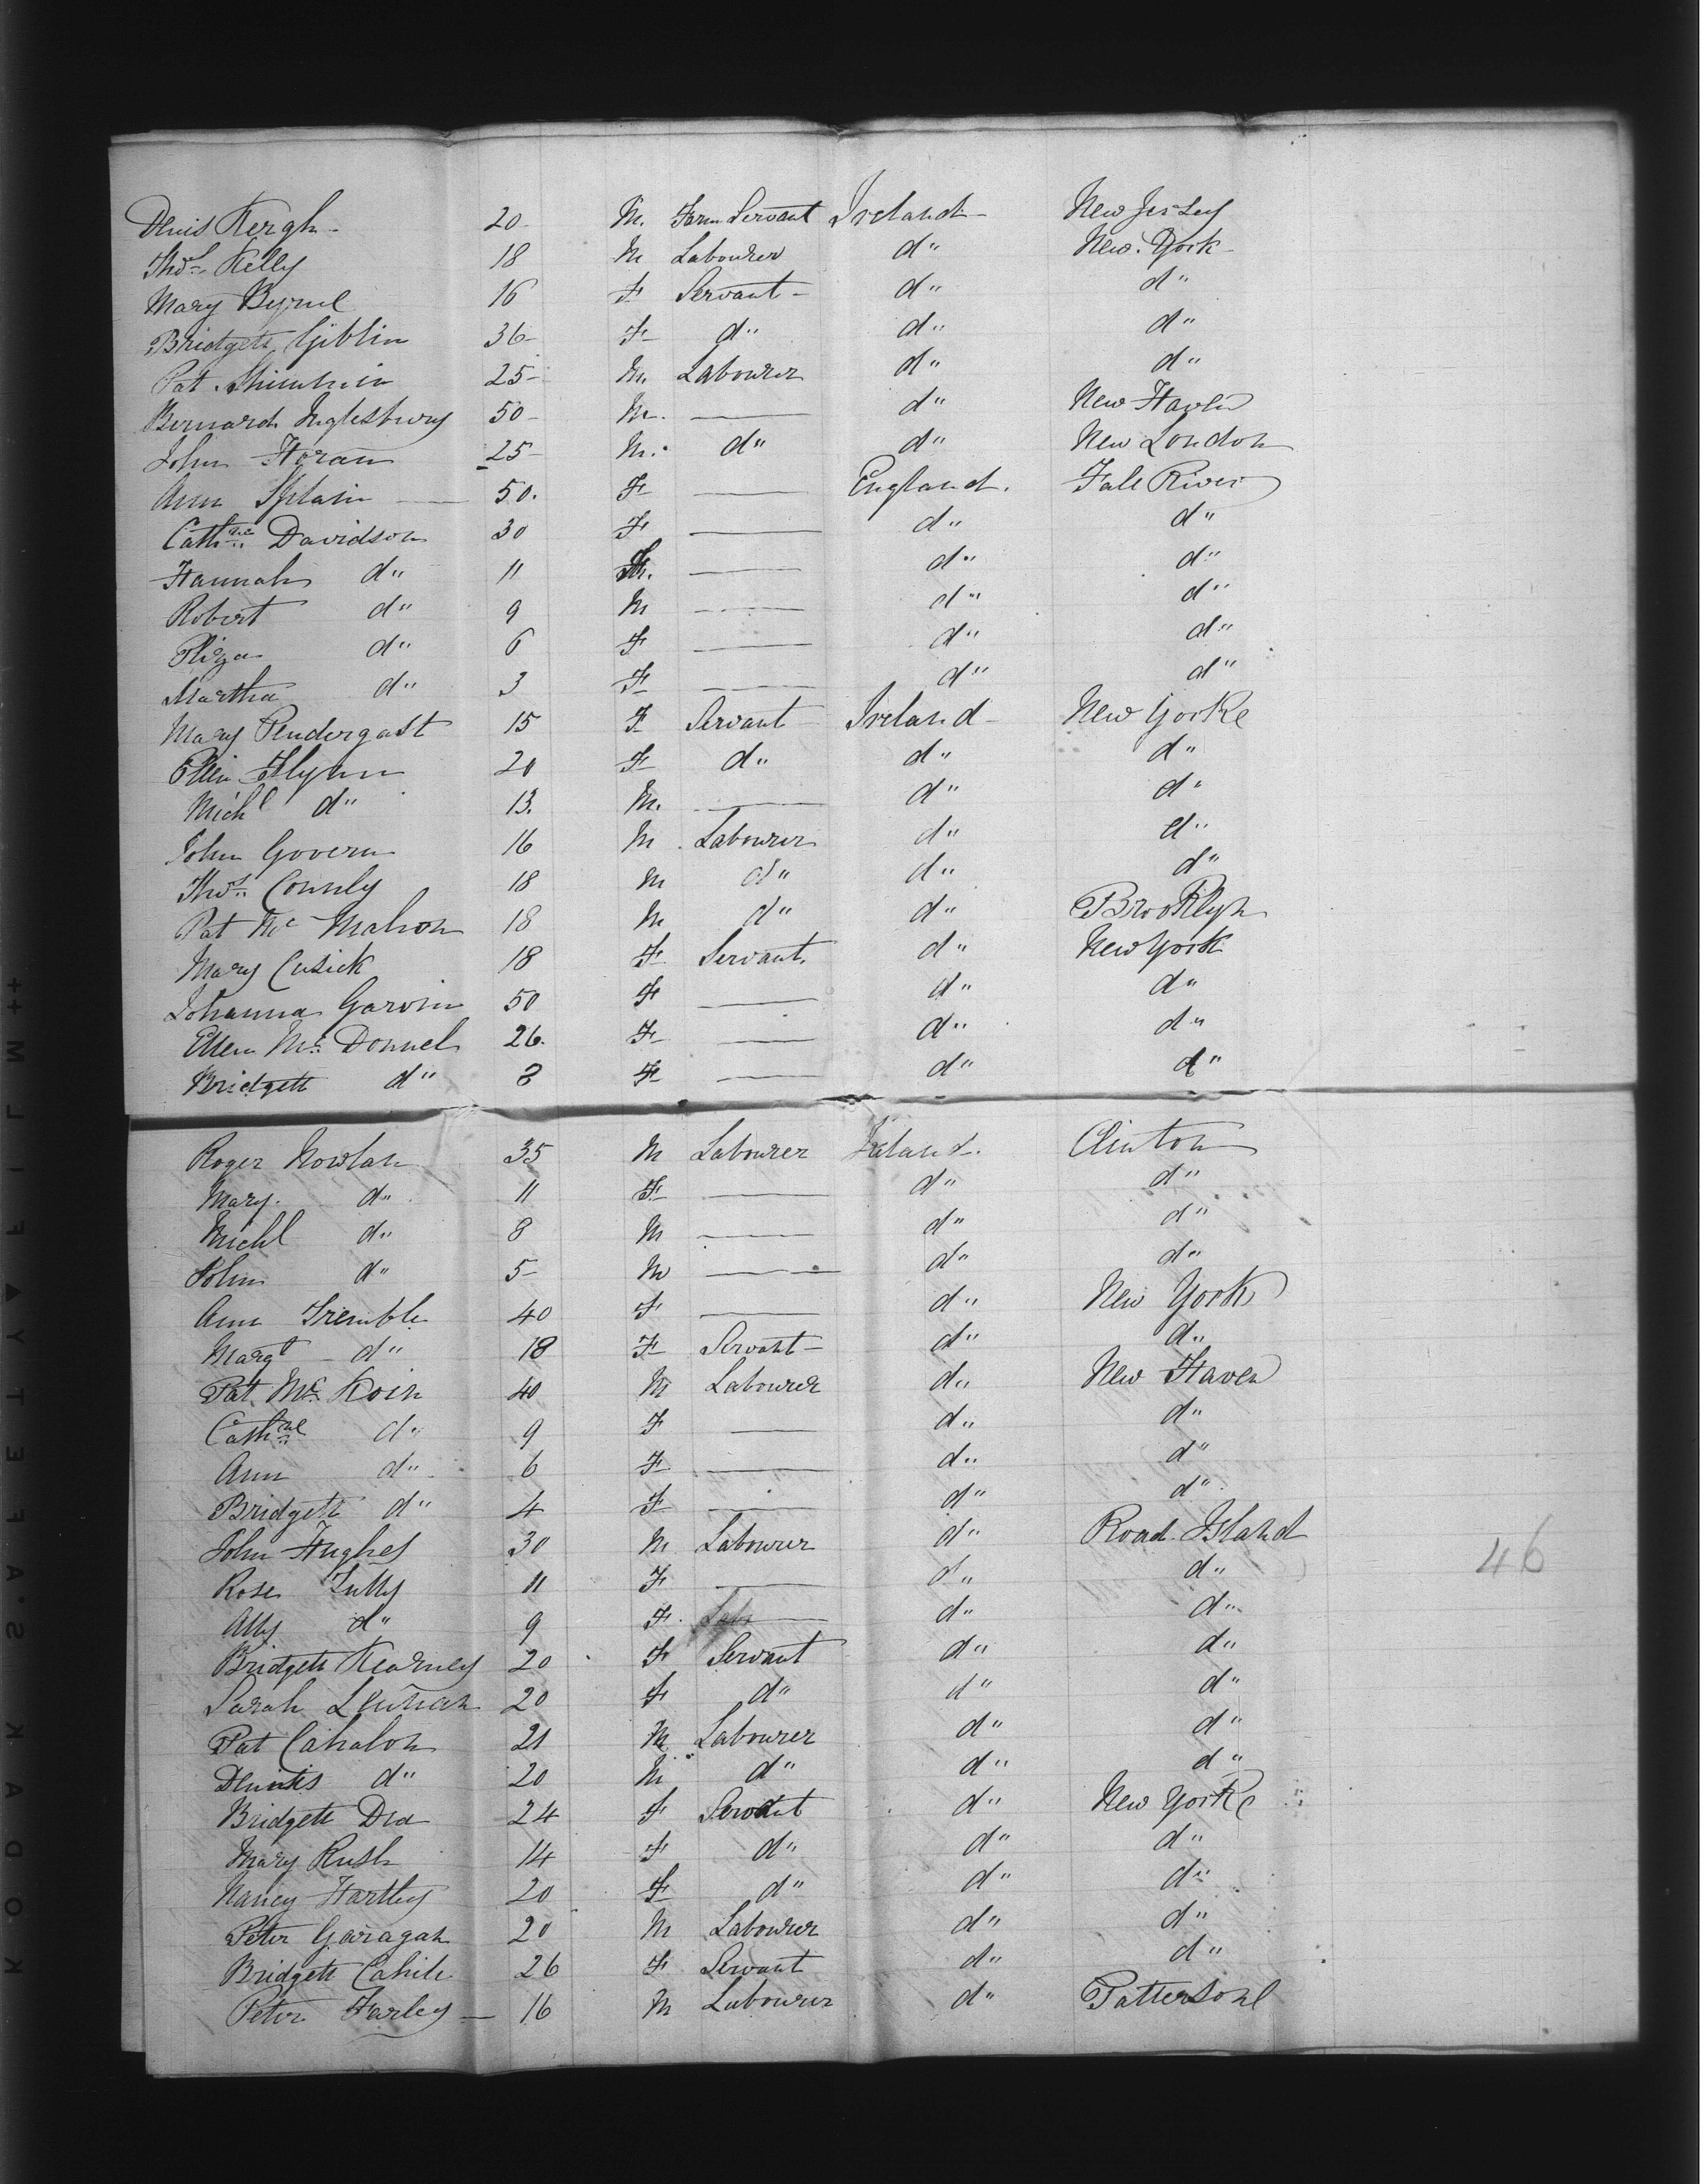 Denis Kergh - 20 M. Farm Servant Ireland - New Jersey
Thos Kelly 18 M Labourer d" New York -
Mary Byrne 16 F Servant - d" d"
Bridgett Giblin 36 F d" d" d"
Pat 25 M. Labourer d" d"
Bernard Inglesbury 50 M. — d" New Haven
John Horan 25 M. d" d" New London
Ann Splain — 50. F — England. Fall River
Cathne Davidson 30 F — d" d"
Hannah d" 11 — d" d"
Robert d" 9 M — d" d"
Eliza d" 6 F — d" d"
Martha d" 3 F — d" d"
Mary Pendergast 15 F Servant Ireland - New Yorke
Ellin Flynn 20 F d" d" d"
Michl d" 13. M. — d" d"
John Govern 16 M Labourer d" d"
Thos Connly 18 M d" d" d"
Pat Mc Mahon 18 M d" d" Brooklyn
Mary Cusick 18 F Servant. d" New York
Johanna Garvin 50 F — d" d"
Ellen Mc Donnel 26. F — d" d"
Bridgett d" 3 F — d" d"
Roger Nowlan 35 M Labourer Ireland. Clinton
Mary. d" 11 F — d" d"
Michl d" 8 M — d" d"
John d" 5 M — d" d"
Ann Tremble 40 F — d" New York
Margt d" 18 F Servant - d" d"
Pat Mc Koin 40 M Labourer d" New Haven
Cathne d" 9 F — d" d"
Ann d" 6 F — d" d"
Bridgett d" 4 F — d" d"
John Hughes 30 M Labourer d" Road Island
46
Rose Tully 11 F — d" d"
Ally d" 9 F. — d" d"
Bridgett Kearney 20 F Servant d" d"
Sarah Lenhan 20 F d" d" d"
Pat Cahalon 21 M Labourer d" d"
Dennis d" 20 M d" d" d"
Bridgett Dea 24 F Servant d" New Yorke
Mary Rush 14 F d" d" d"
Nancy Hartley 20 F d" d" d"
Peter Garagan 20 M Labourer d" d"
Bridgett Cahile 26 F Servant d" d"
Peter Farley — 16 M Labourer d" Pattersonl
KODAK·SAFETY▲FILM++